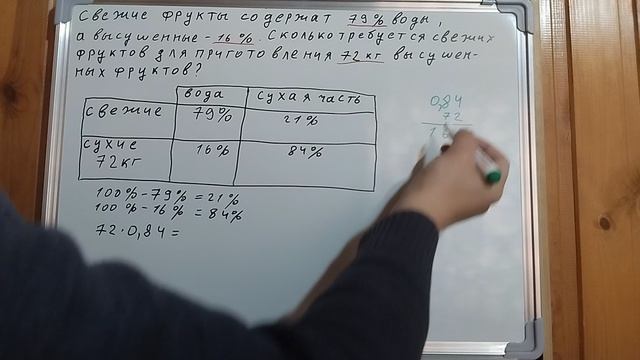 Свежие фрукты содержат 79% воды,
а высушенные - 16%. Сколько требуется свежих
фруктов для приготовления 72 кг высушен-
ных фруктов?
вода сухая часть
свежие 79% 21%
сухие 16% 84%
72кг
100% - 79% = 21%
100% - 16% = 84%
72 · 0,84 =
0,84
72
1